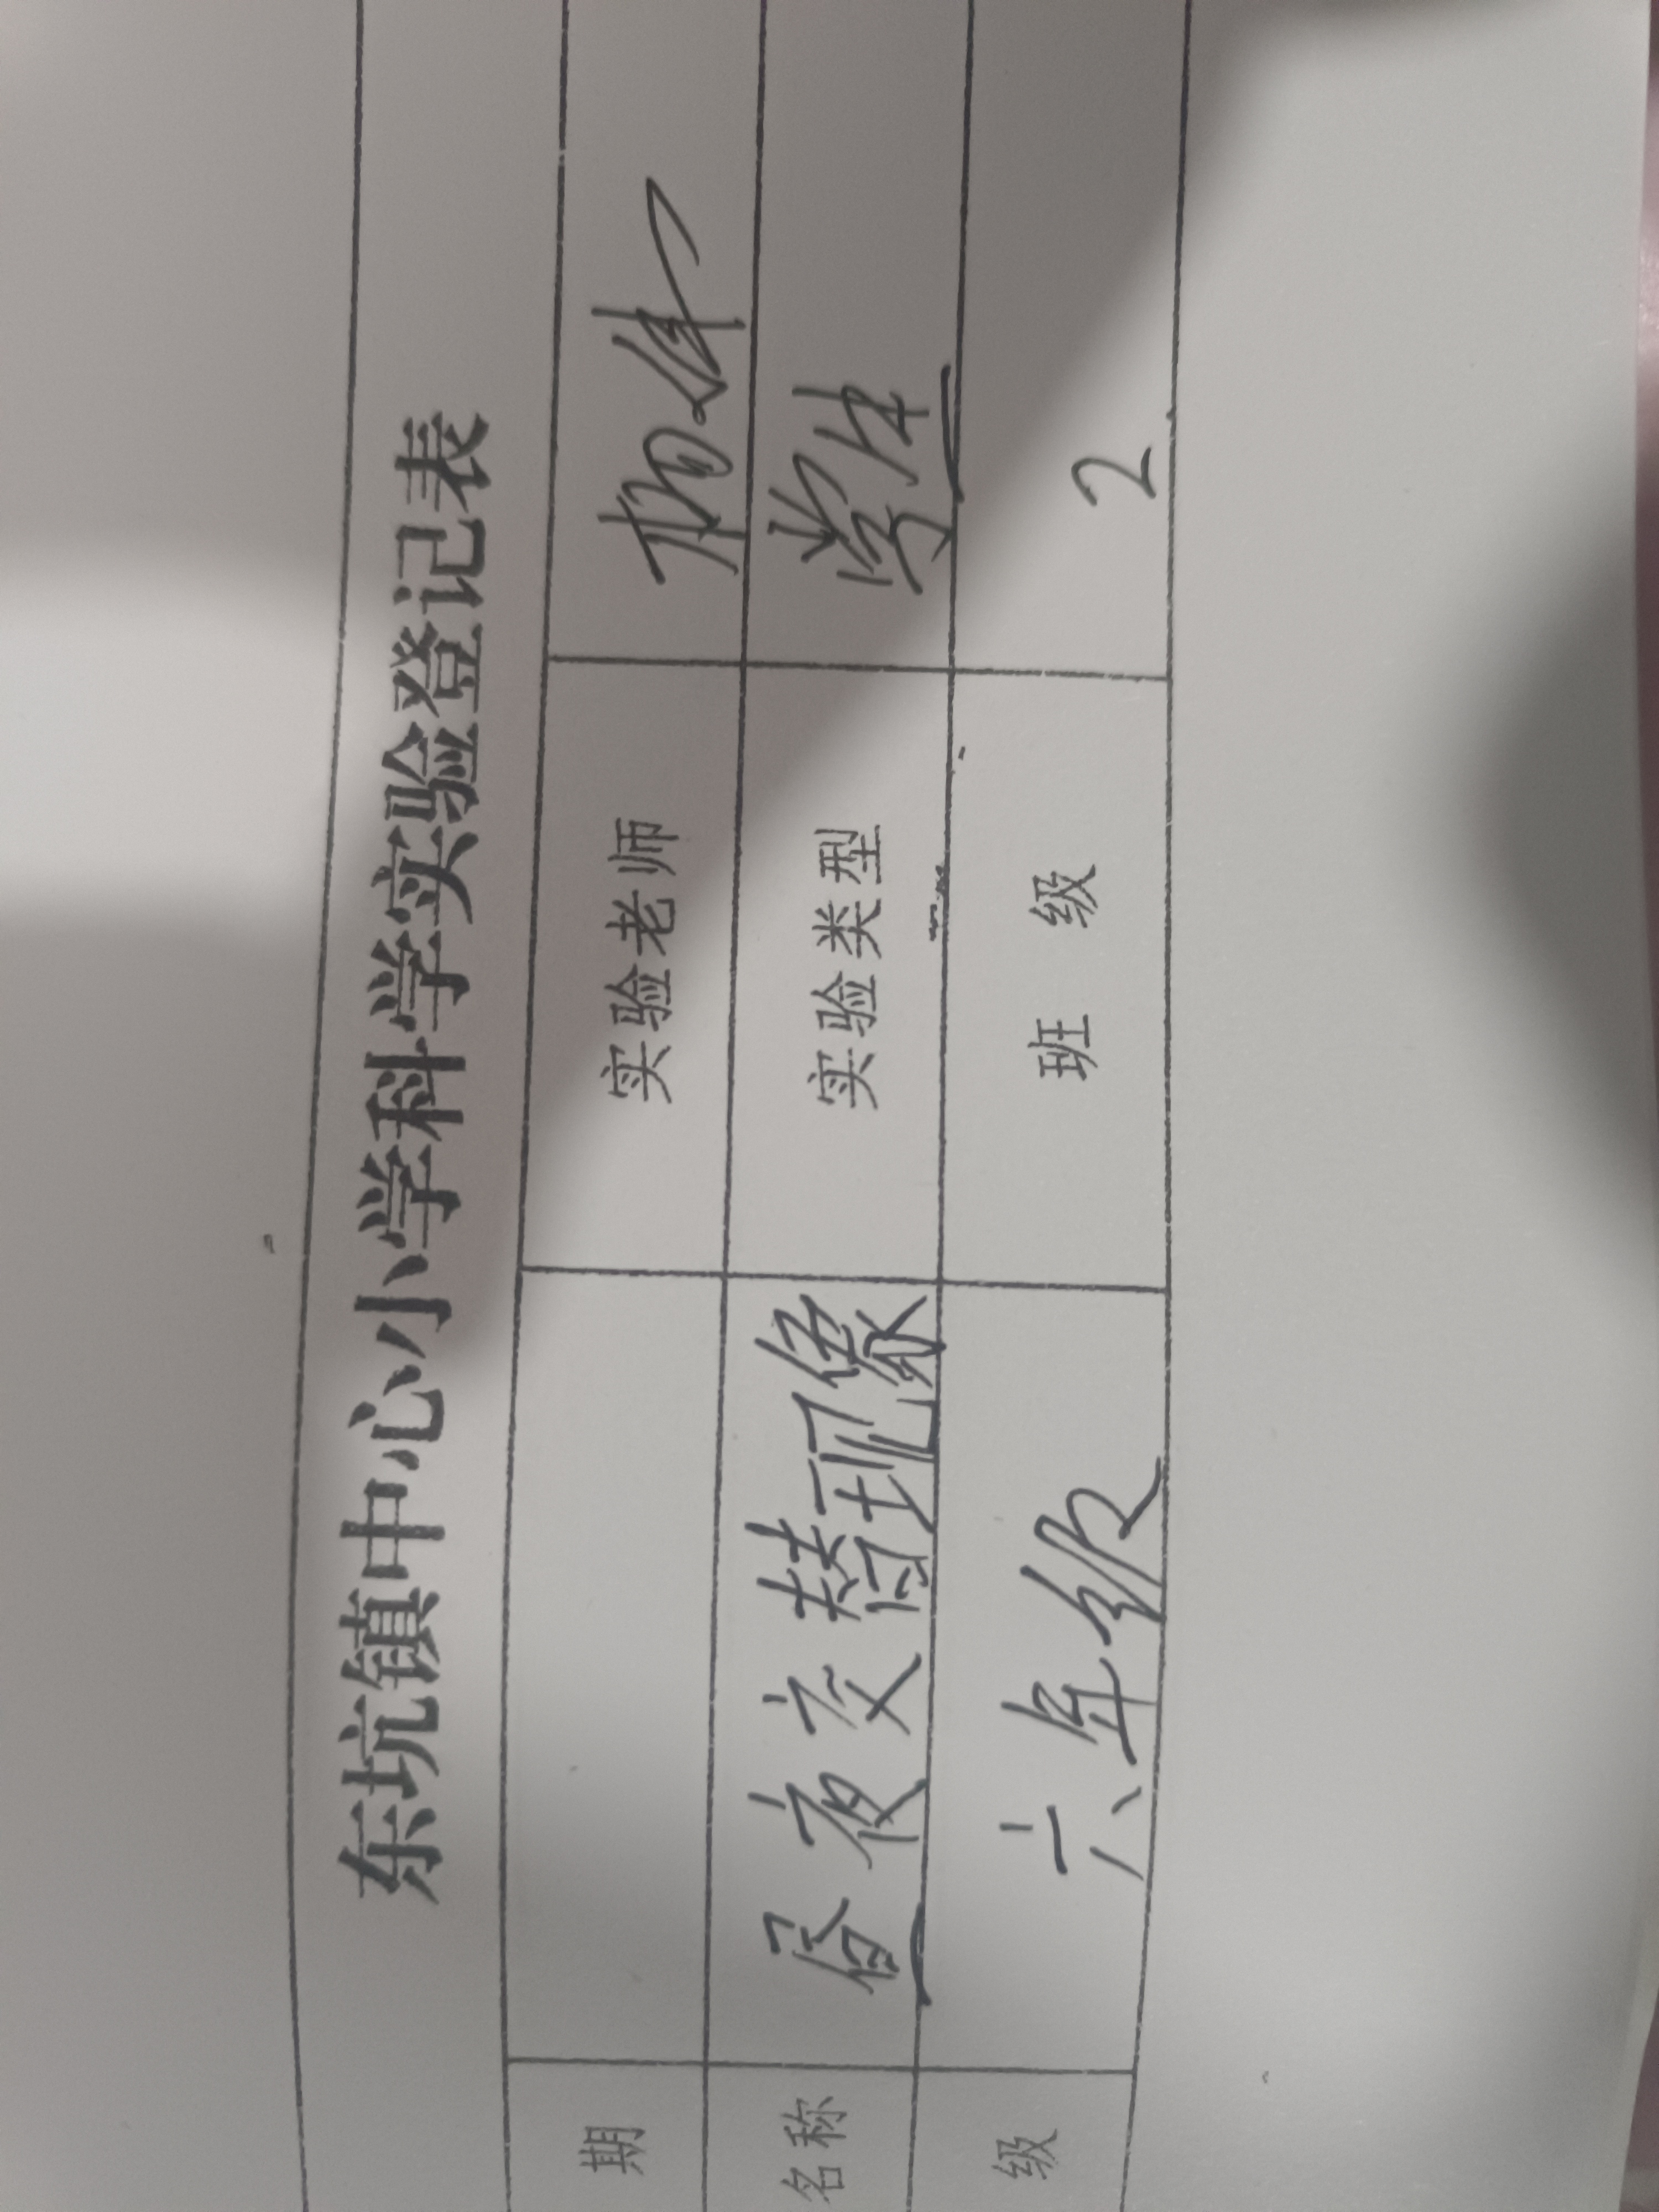 东坑镇中心小学科学实验登记表
期 实验老师
名称 昼夜交替现象 实验类型 学生
级 六年级 班 级 2